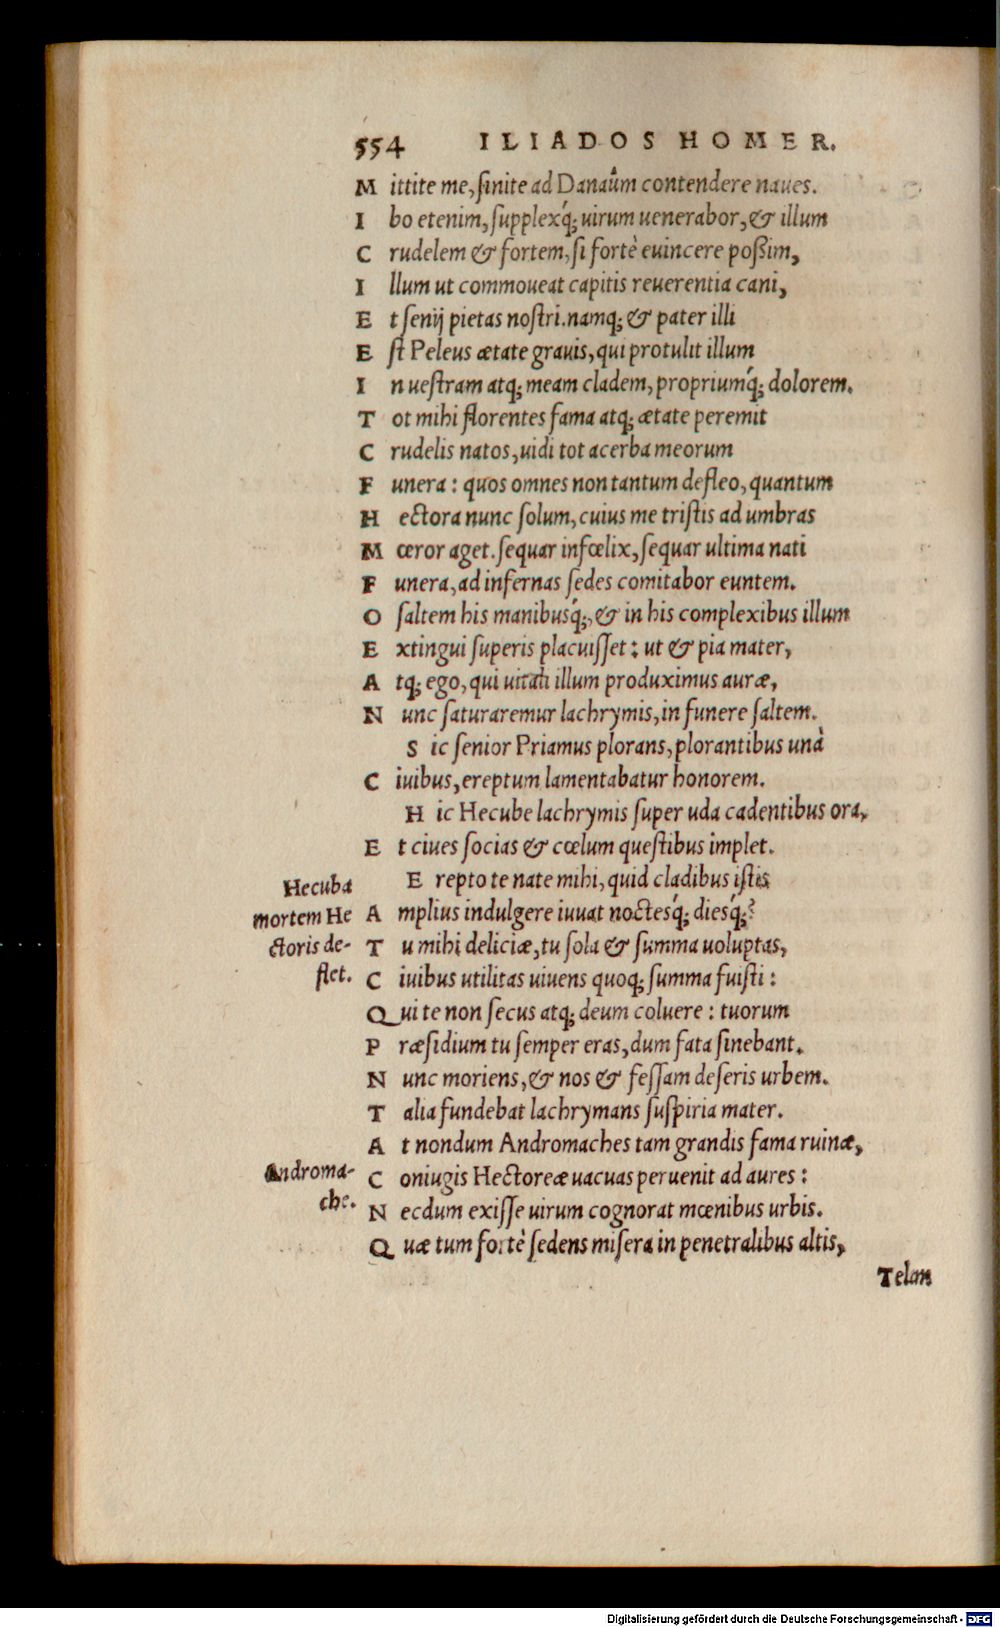 554 ILIADOS HOMER.
Mittite me, ſinite ad Danaûm contendere naues.
Ibo etenim, ſupplexq́; uirum uenerabor, & illum
Crudelem & fortem, ſi fortè euincere poßim,
Illum ut commoueat capitis reuerentia cani,
Et ſenij pietas noſtri. namq; & pater illi
Eſt Peleus ætate grauis, qui protulit illum
In ueſtram atq; meam cladem, propriumq́; dolorem.
Tot mihi florentes fama atq; ætate peremit
Crudelis natos, uidi tot acerba meorum
Funera: quos omnes non tantum defleo, quantum
Hectora nunc ſolum, cuius me triſtis ad umbras
Mœror aget. ſequar infœlix, ſequar ultima nati
Funera, ad infernas ſedes comitabor euntem.
O ſaltem his manibusq́;, & in his complexibus illum
Extingui ſuperis placuiſſet: ut & pia mater,
Atq; ego, qui uitali illum produximus auræ,
Nunc ſaturaremur lachrymis, in funere ſaltem.
Sic ſenior Priamus plorans, plorantibus unà
Ciuibus, ereptum lamentabatur honorem.
Hic Hecube lachrymis ſuper uda cadentibus ora,
Et ciues ſocias & cœlum queſtibus implet.
Erepto te nate mihi, quid cladibus iſtis
Amplius indulgere iuuat noctesq́; diesq́;?
Tu mihi deliciæ, tu ſola & ſumma uoluptas,
Ciuibus utilitas uiuens quoq; ſumma fuiſti:
Qui te non ſecus atq; deum coluere: tuorum
Præſidium tu ſemper eras, dum fata ſinebant.
Nunc moriens, & nos & feſſam deſeris urbem.
Talia fundebat lachrymans ſuſpiria mater.
At nondum Andromaches tam grandis fama ruinæ,
Coniugis Hectoreæ uacuas peruenit ad aures:
Necdum exiſſe uirum cognorat mœnibus urbis.
Quæ tum fortè ſedens miſera in penetralibus altis,
Telam
Hecuba
mortem He
ctoris de-
flet.
Androma-
che.
Digitalisierung gefördert durch die Deutsche Forschungsgemeinschaft - DFG